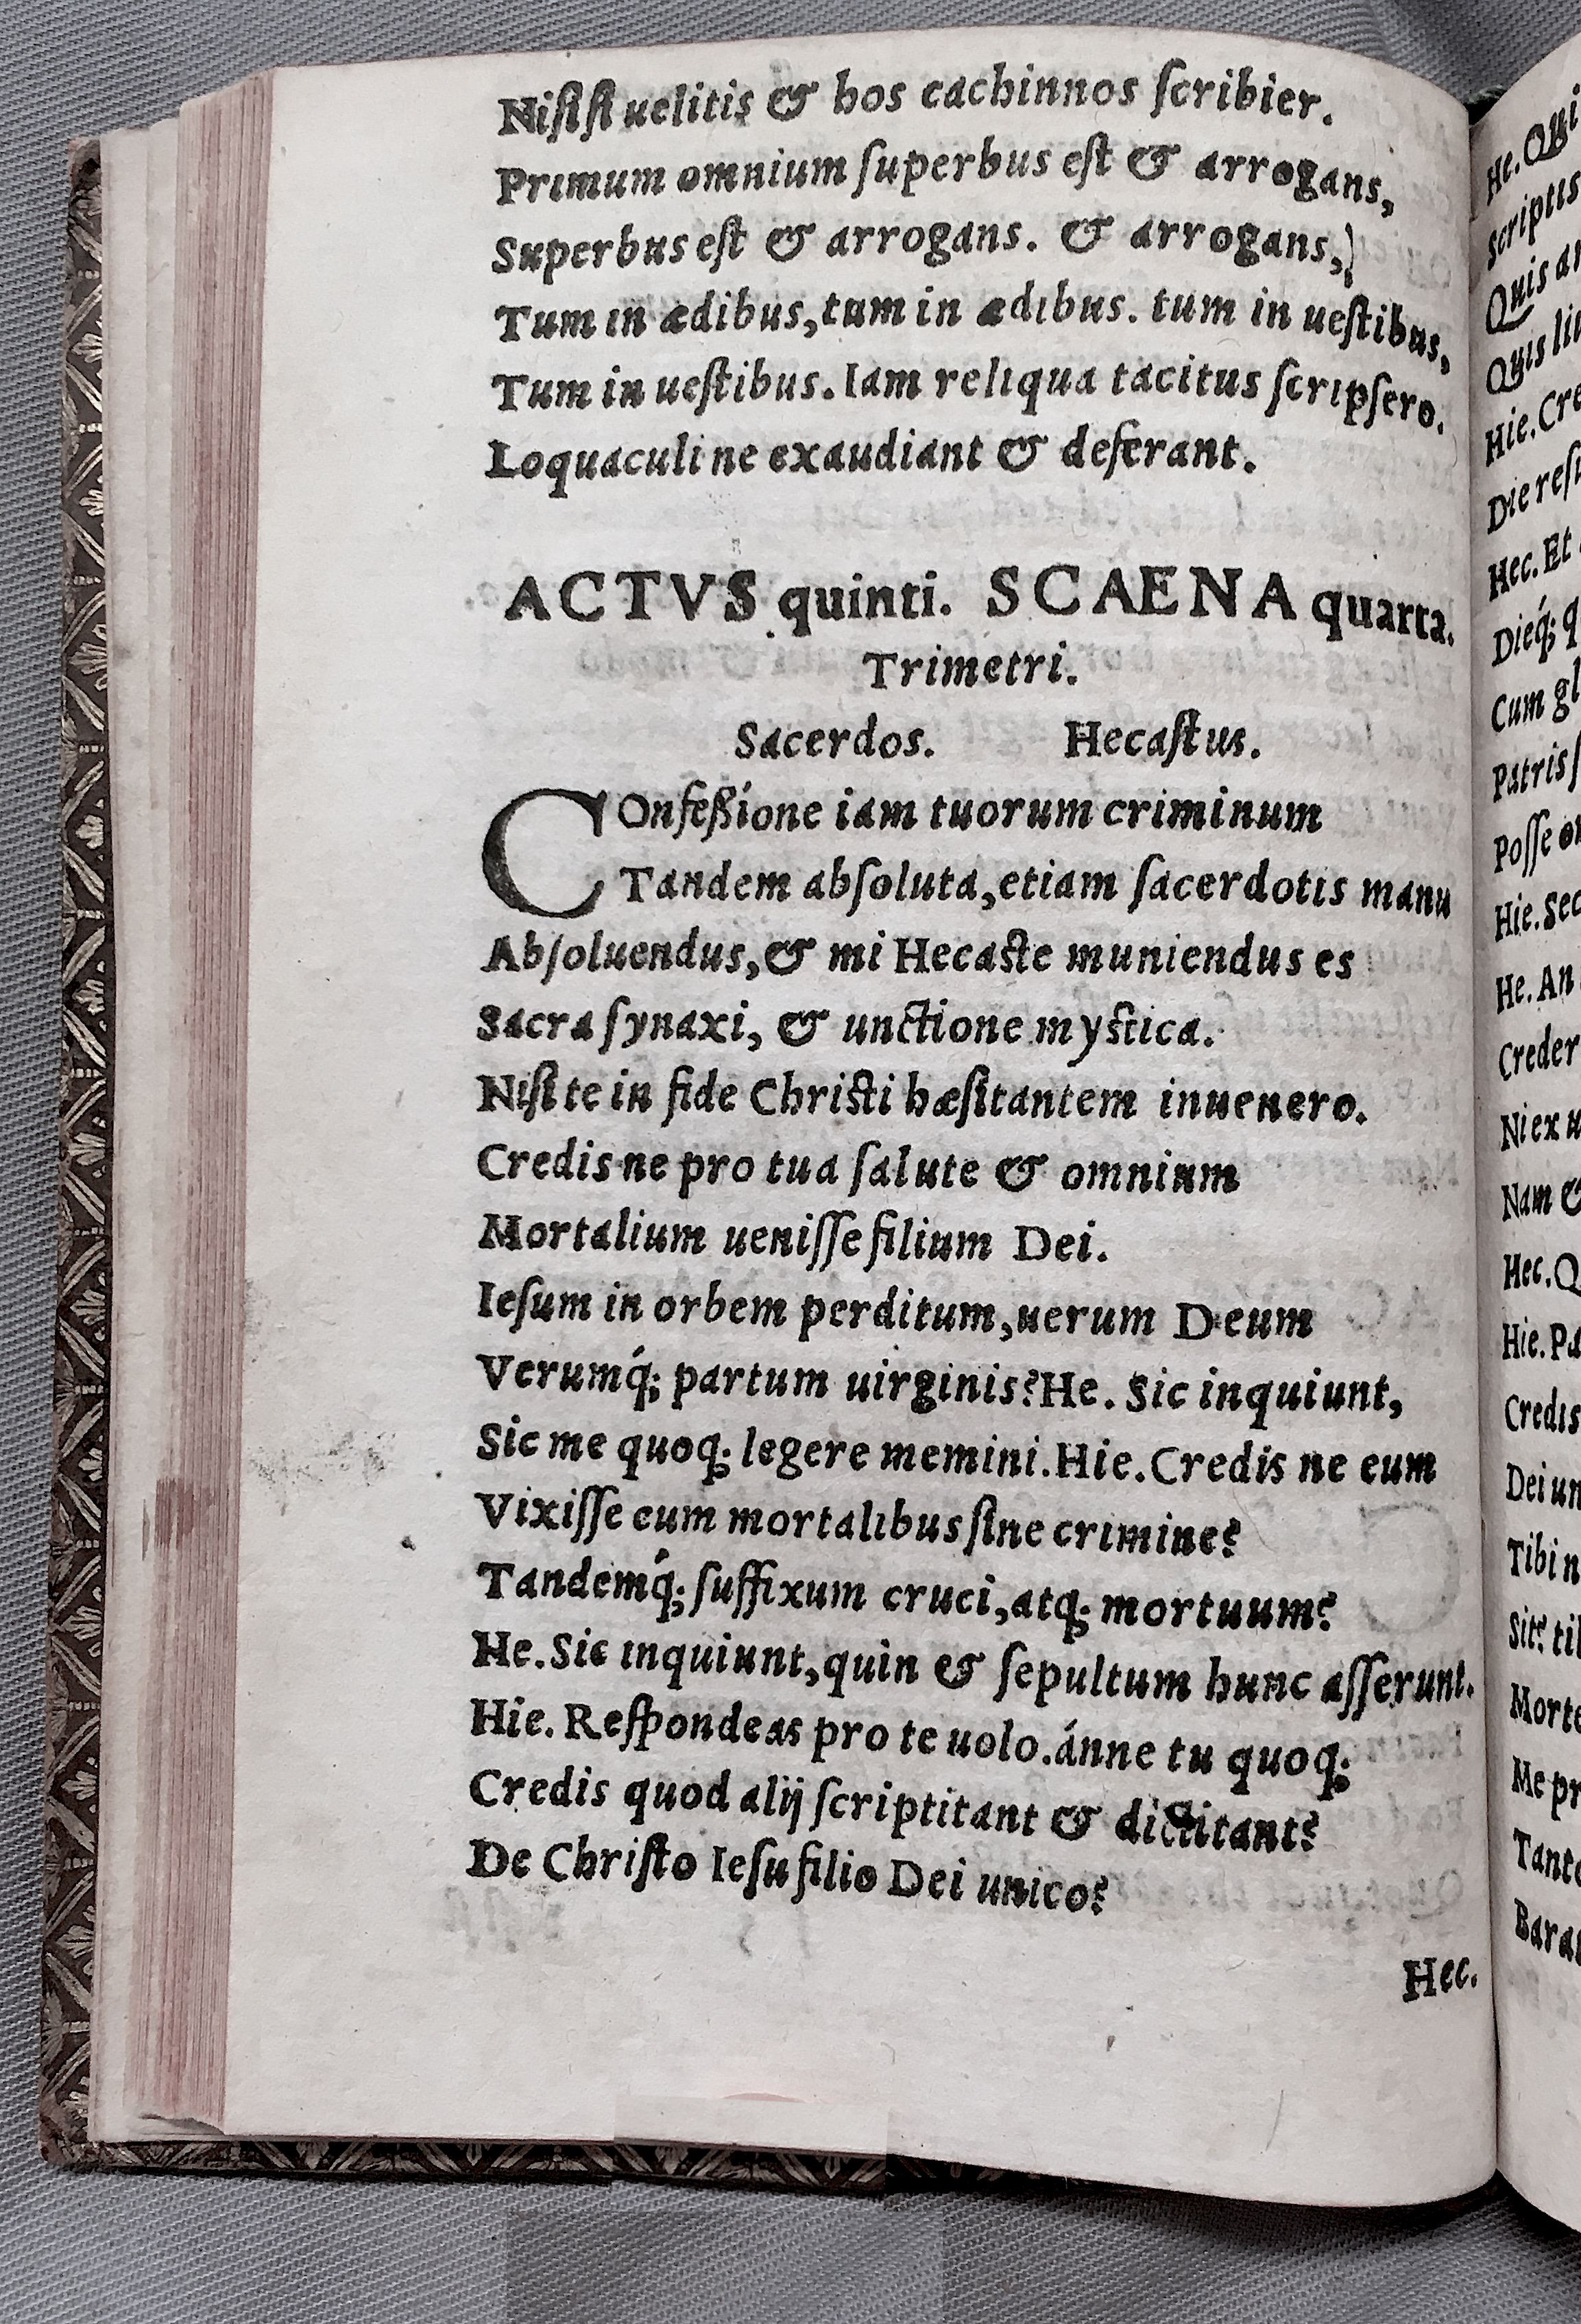 Niſi ſi uelitis & hos cachinnos ſcribier.
Primum omnium ſuperbus eſt & arrogans,
Superbus eſt & arrogans. & arrogans,)
Tum in ædibus, tum in ædibus. tum in ueſtibus,
Tum in ueſtibus. Iam reliqua tacitus ſcripſero.
Loquaculi ne exaudiant & deferant.
ACTVS quinti. SCAENA quarta.
Trimetri.
Sacerdos. Hecaſtus.
COnfeßíone iam tuorum criminum
Tandem abſoluta, etiam ſacerdotis manu
Abſoluendus, & mi Hecaſte muniendus es
Sacra ſynaxi, & unctione myſtica.
Niſi te in fide Chriſti hæſitantem inuenero.
Credis ne pro tua ſalute & omnium
Mortalium ueniſſe filium Dei.
Ieſum in orbem perditum, uerum Deum
Verumq́; partum uirginis? He. Sic inquiunt,
Sic me quoq; legere memini. Hie. Credis ne eum
Vixiſſe cum mortalibus ſine crimine?
Tandemq́; ſuffixum cruci, atq; mortuum?
He. Sic inquiunt, quin & ſepultum hunc aſſerunt.
Hie. Reſpondeas pro te uolo. ánne tu quoq;
Credis quod alij ſcriptitant & dictitant?
De Chriſto Ieſu filio Dei unico?
Hec.
He. Qui
Scriptis
Quis
Quis
Hie. Cre
Die
Hec. Et
Dieq́;
Cum
Patris
Poſſe
Hie.
He. An
Creder
Ni ex
Nam &
Hec.
Hie.
Credis
Dei
Tibi
Sit?
Morte
Me